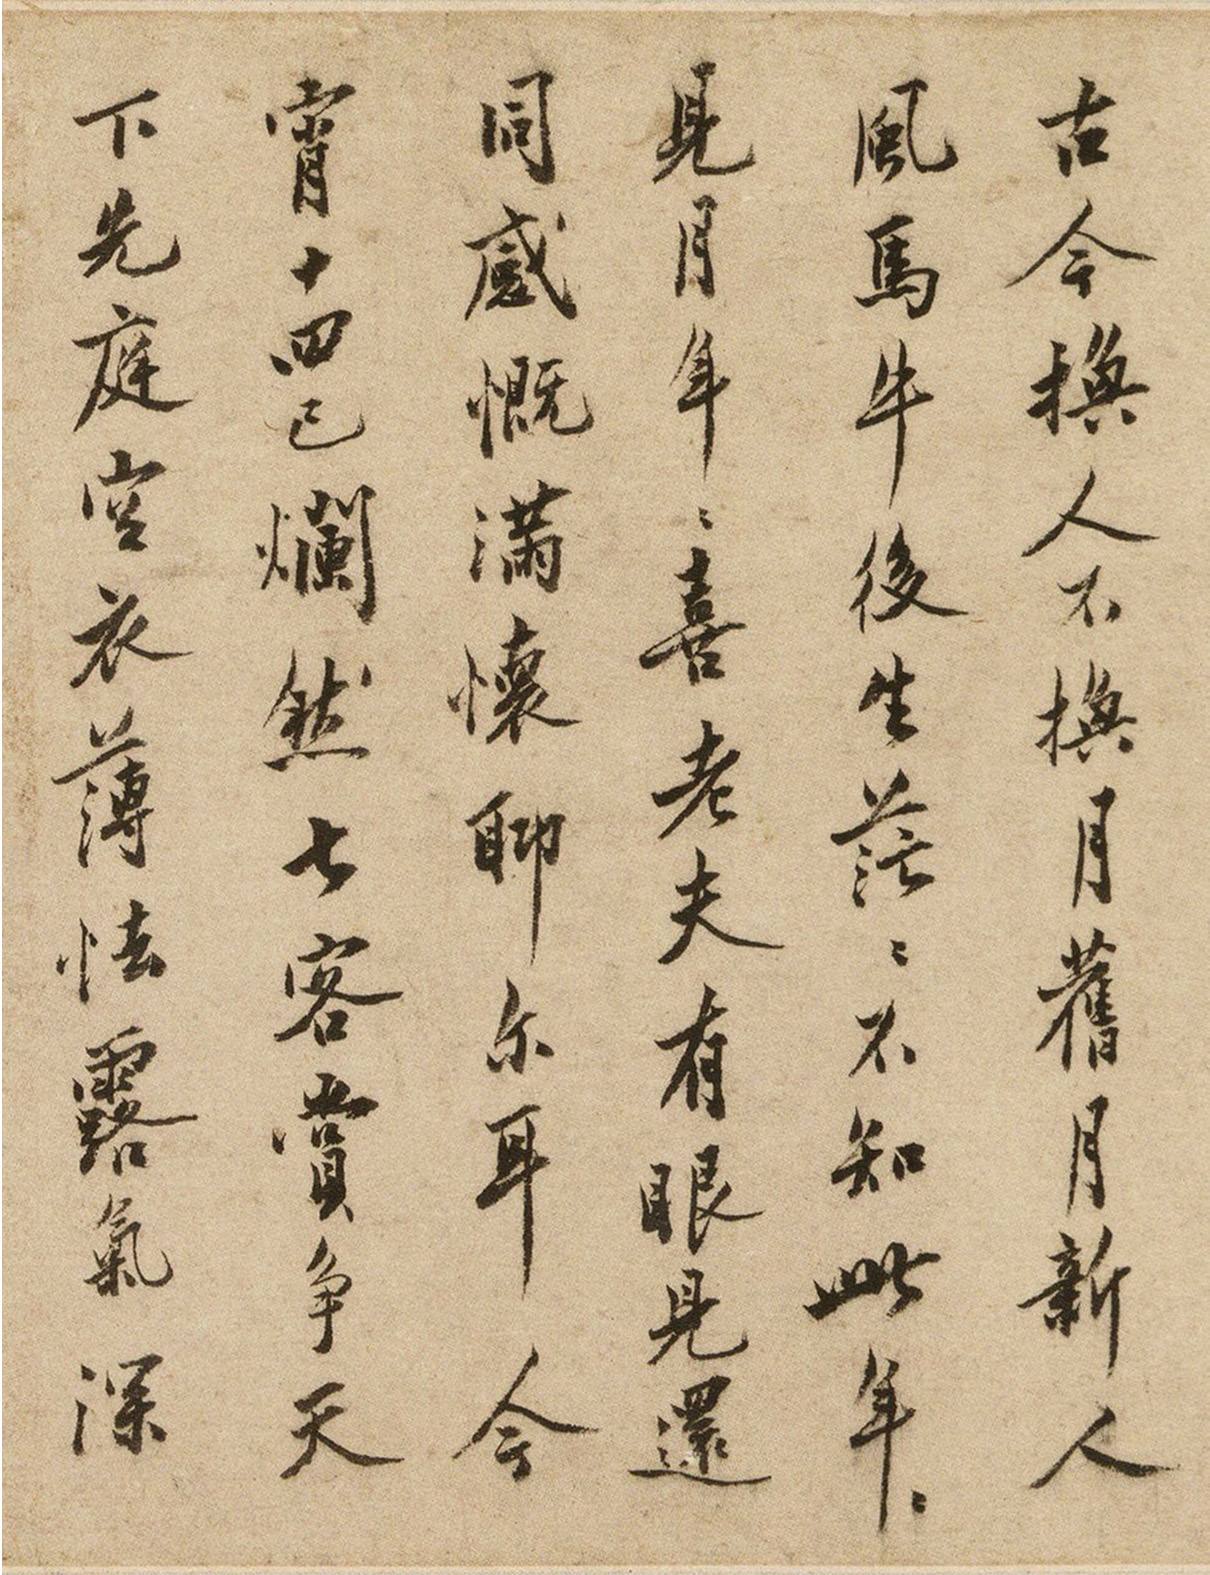 古今換人不換月舊月新人
風馬牛後生茫〻不知此年〻
見月年〻喜老夫有眼見還
同感慨滿懷聊尔耳今
宵十四已爛然七客賞争天
下先庭空衣薄怯露氣深